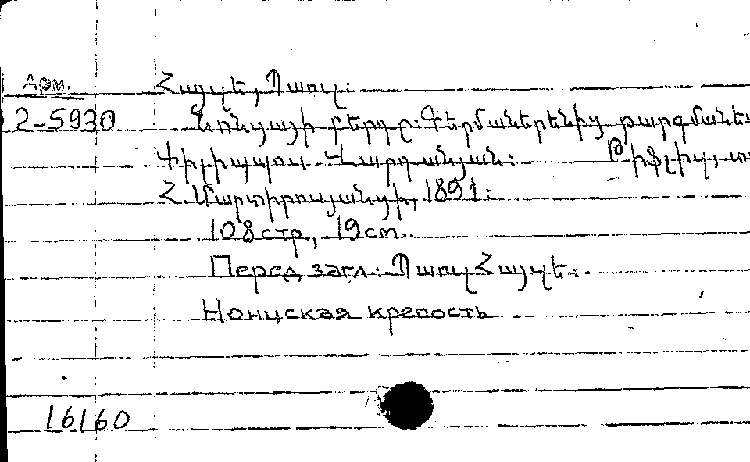 Арм.
2-5930
Հայզե, Պաուլ.
Նոնսայի բերդը: Գերմաներենից թարգմանեց
Փիլիպպոս Վարդանյան: Թիֆլիս, տ
Հ. Մարտիրոսյանցի, 1891:
108 стр., 19 cm.
Перед загл.: Պաուլ Հայզե.
Нонцская крепость
16160